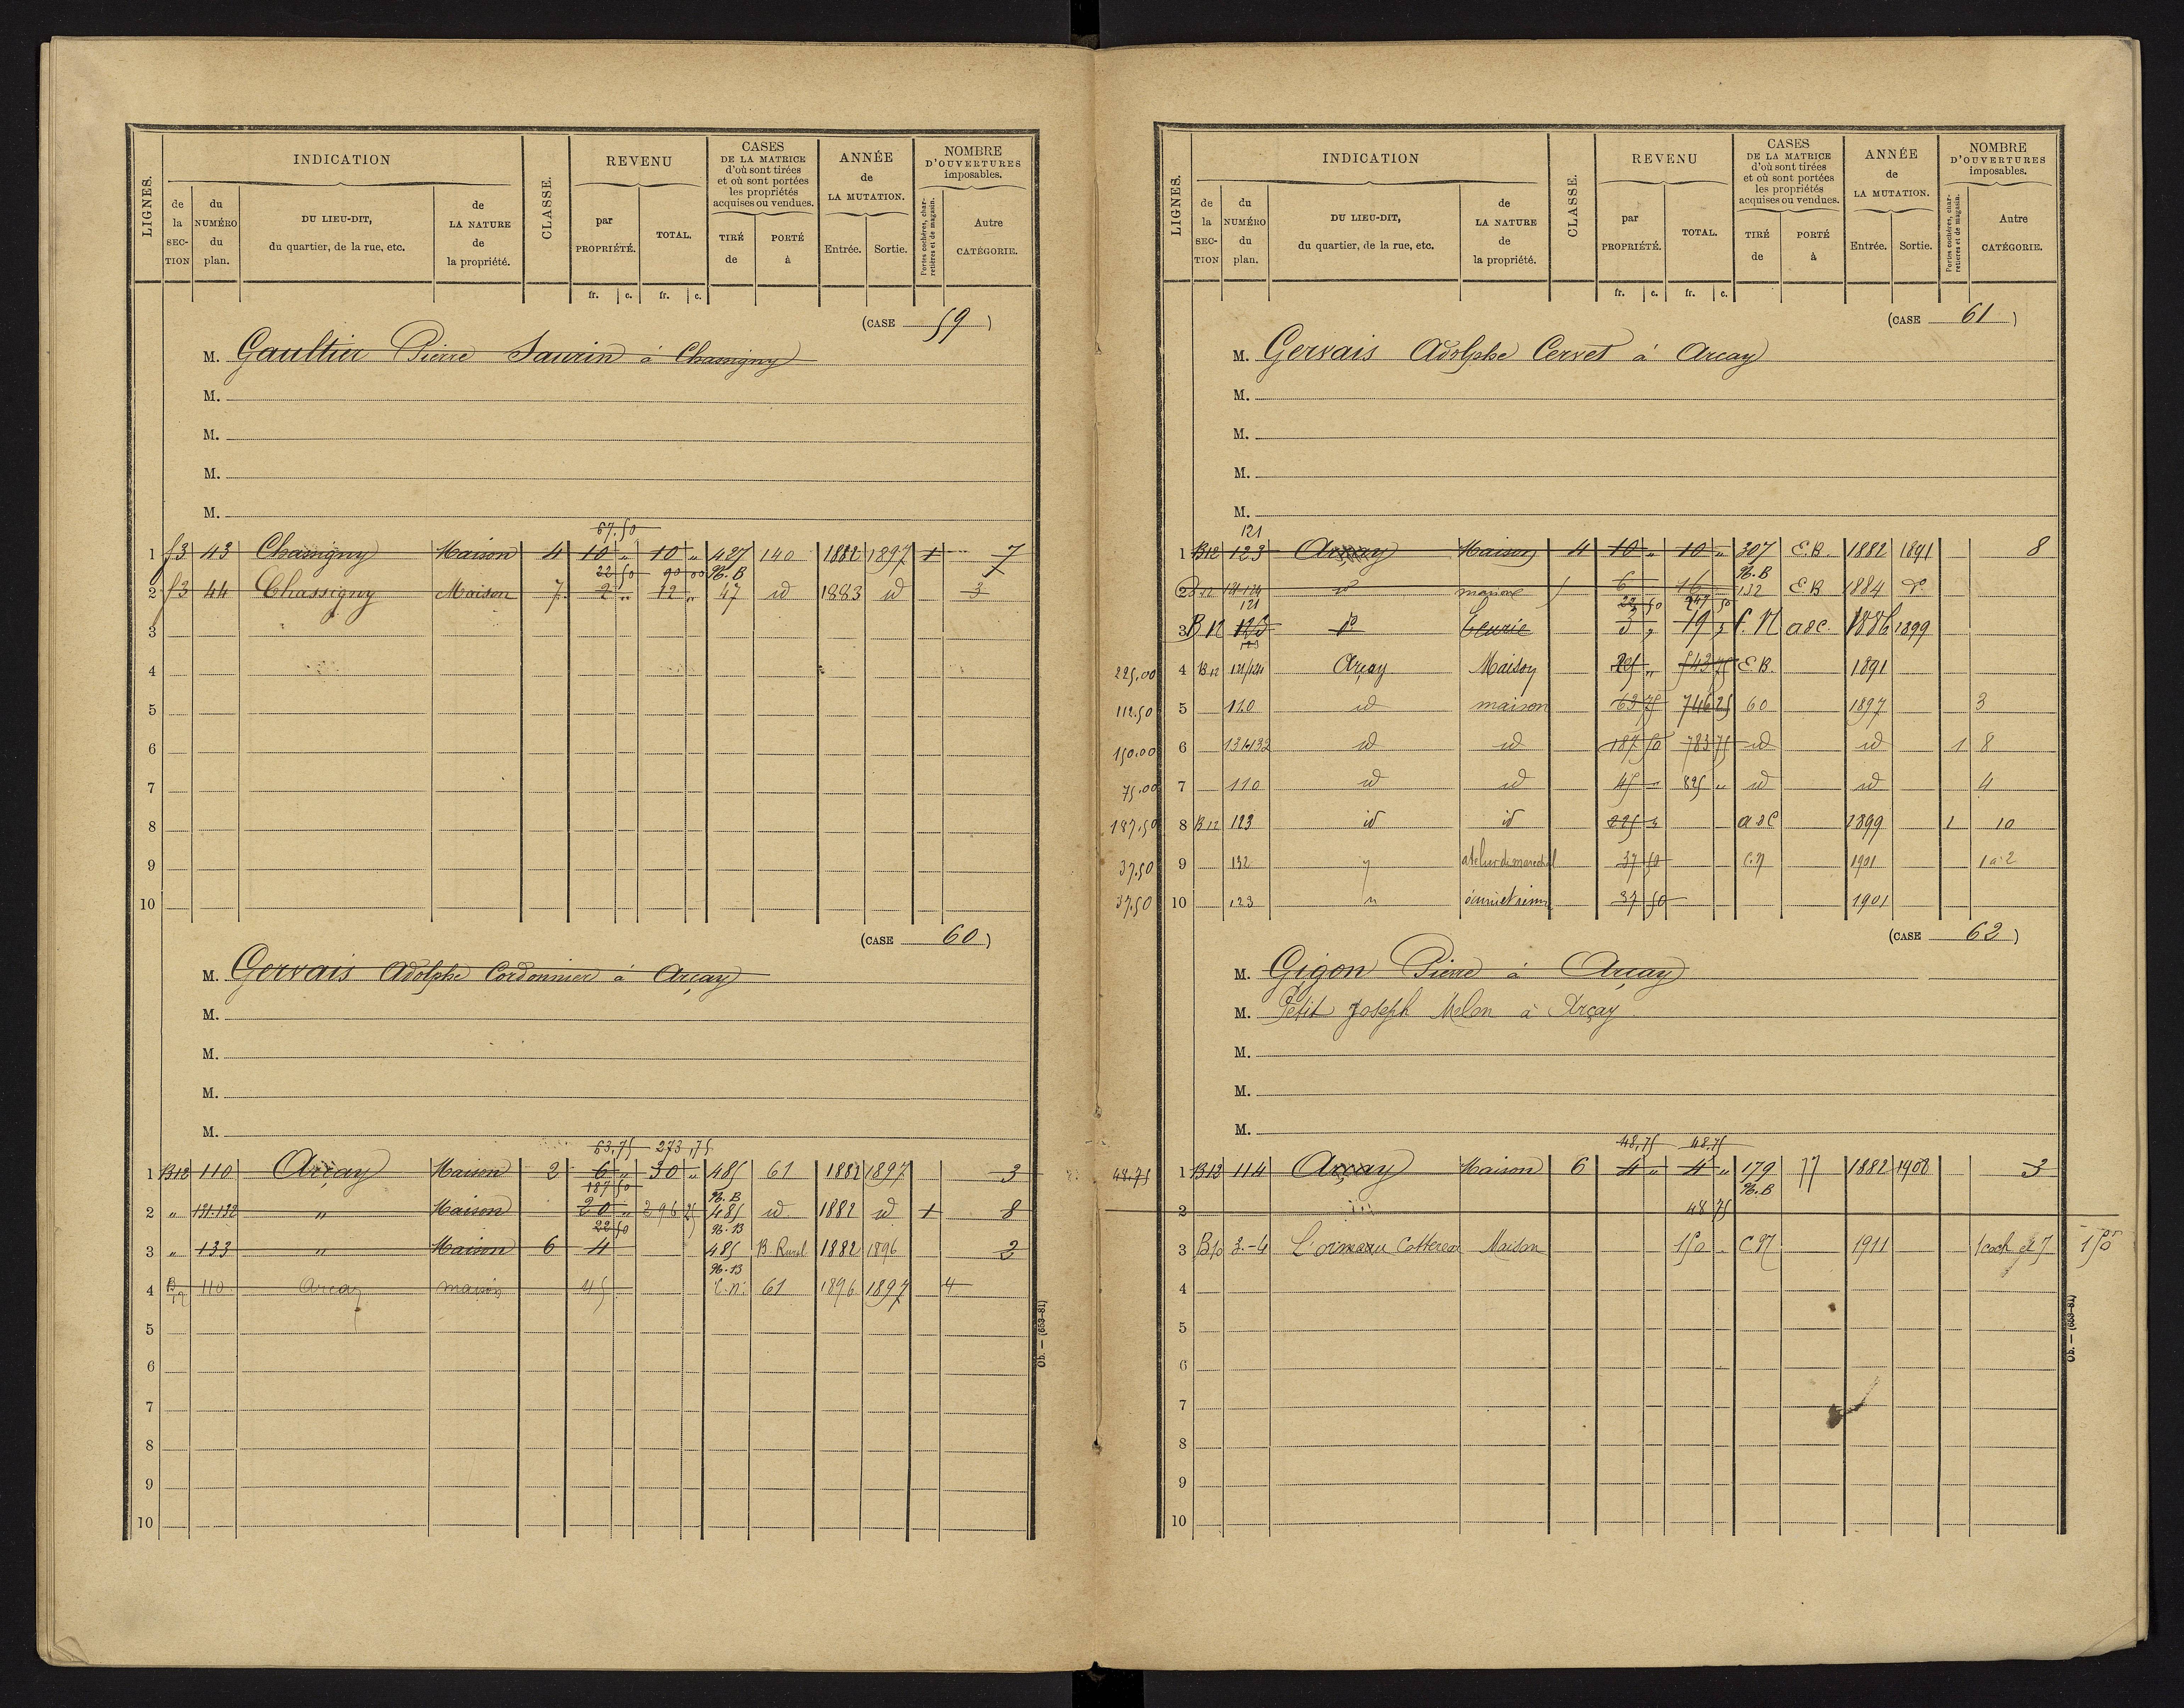 LIGNES.
INDICATION
de la SECTION
du NUMÉRO du plan.
DU LIEU-DIT, du quartier, de la rue, etc.
de LA NATURE de la propriété.
CLASSE.
REVENU
par PROPRIÉTÉ.
TOTAL.
fr. c. fr. c.
CASES DE LA MATRICE d'où sont tirées et où sont portées les propriétés acquises ou vendues.
TIRÉ de
PORTÉ à
ANNÉE de LA MUTATION.
Entrée. Sortie.
NOMBRE D'OUVERTURES imposables.
Portes cochères, charretières et de magasin.
Autre CATÉGORIE.
(CASE 59)
M. Gaultier Pierre Saurin à Chassigny
M.
M.
M.
M.
67.50
1 f3 43 Chassigny Maison 4 10 " 10 " 427 140 1882 1897 1 7
22 50 90 00 N.B
2 f3 44 Chassigny Maison 7 2 " 12 " 47 id 1883 id 3
3
4
5
6
7
8
9
10
(CASE 60)
M. Gervais Adolphe Cordonnier à Arçay
M.
M.
M.
M.
63,75 273,75
1 B12 110 Arçay Maison 2 6 " 30 " 485 61 1882 1897 3
187 50 N.B
2 " 131-132 " Maison 20 " 296 25 485 id 1882 id 1 8
22 50 N.B
3 " 133 " Maison 6 4 485 B. Rural 1882 1896 2
N.B
4 B12 110 Arçay maison 45 C.n. 61 1896 1897 4
5
6
7
8
9
10
Ob. — (653-81)
LIGNES.
INDICATION
de la SECTION
du NUMÉRO du plan.
DU LIEU-DIT, du quartier, de la rue, etc.
de LA NATURE de la propriété.
CLASSE.
REVENU
par PROPRIÉTÉ.
TOTAL.
fr. c. fr. c.
CASES DE LA MATRICE d'où sont tirées et où sont portées les propriétés acquises ou vendues.
TIRÉ de
PORTÉ à
ANNÉE de LA MUTATION.
Entrée. Sortie.
NOMBRE D'OUVERTURES imposables.
Portes cochères, charretières et de magasin.
Autre CATÉGORIE.
(CASE 61)
M. Gervais Adolphe Cervet à Arcay
M.
M.
M.
M.
121
1 B12 123 Arçay Maison 4 10 " 10 " 307 E.B. 1882 1891 8
N.B
2 B12 121-124 id 6 16 132 E.B 1884 do
121 22 50 247 50
3 B12 123 do 3 " 19 " C.N adc. 1886 1899
225,00 4 B12 121/124 Arçay Maison 543 75 E.B. 1891
112.50 5 110 id maison 63 75 746 25 60 1897 3
150.00 6 131-132 id id 187 50 783 75 id id 1 8
75.00 7 110 id id 45 " 825 " id id 4
187.50 8 B12 123 id id 225 " adC 1899 1 10
37.50 9 132 " atelier de marechal 37 50 C.N 1901 1 à 2
37.50 10 123 " 37 50 1901
(CASE 62)
M. Gigon Pierre à Arçay
M. Petit Joseph Melon à Arçay
M.
M.
M.
48,75 48,75
48.75 1 B12 114 Arçay Maison 6 4 " 4 " 179 77 1882 1908 3
N.B
2 48 75
3 B10 3.-4 L'ormeau Cottereau Maison 150 C.N 1911 1 coch et 7 150
4
5
6
7
8
9
10
Ob. — (653-81)